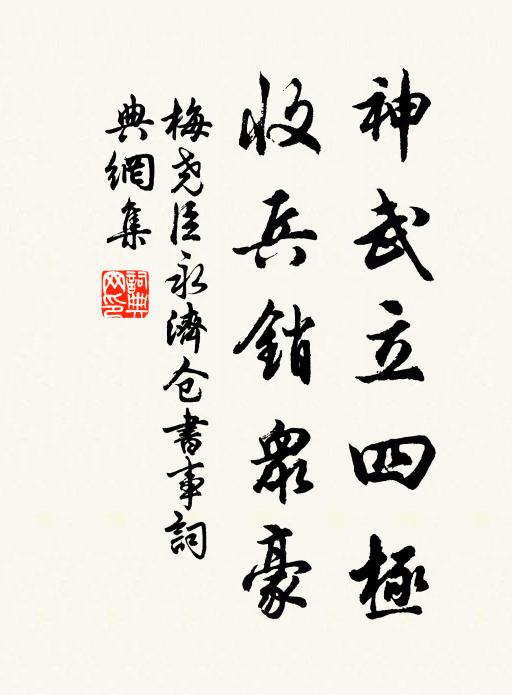 神武立四極
收兵銷眾豪
梅堯臣永濟仓書事詞
典網集
詞典
网印